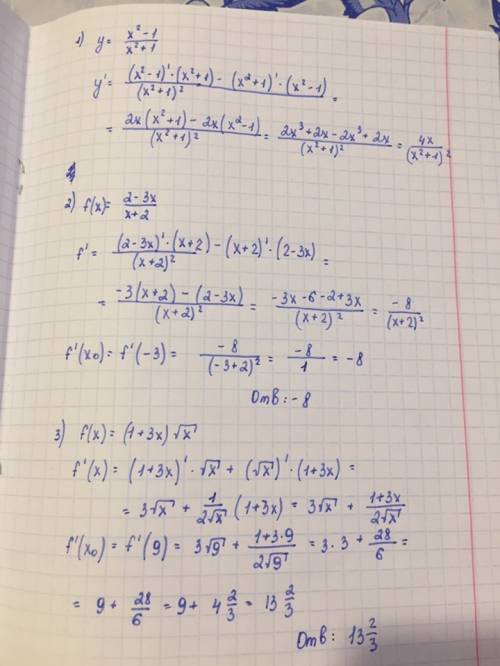 1) y = (x²-1)/(x²+1)
y' = ((x²-1)'·(x²+1) - (x²+1)'·(x²-1))/(x²+1)² =
= (2x(x²+1) - 2x(x²-1))/(x²+1)² = (2x³+2x-2x³+2x)/(x²+1)² = 4x/(x²+1)²
2) f(x) = (2-3x)/(x+2)
f' = ((2-3x)'·(x+2) - (x+2)'·(2-3x))/(x+2)² =
= (-3(x+2) - (2-3x))/(x+2)² = (-3x-6-2+3x)/(x+2)² = -8/(x+2)²
f'(x₀) = f'(-3) = -8/(-3+2)² = -8/1 = -8
Отв: -8
3) f(x) = (1+3x)√x
f'(x) = (1+3x)'·√x + (√x)'·(1+3x) =
= 3√x + 1/(2√x) (1+3x) = 3√x + (1+3x)/(2√x)
f'(x₀) = f'(9) = 3√9 + (1+3·9)/(2√9) = 3·3 + 28/6 =
= 9 + 28/6 = 9 + 4 2/3 = 13 2/3
Отв: 13 2/3